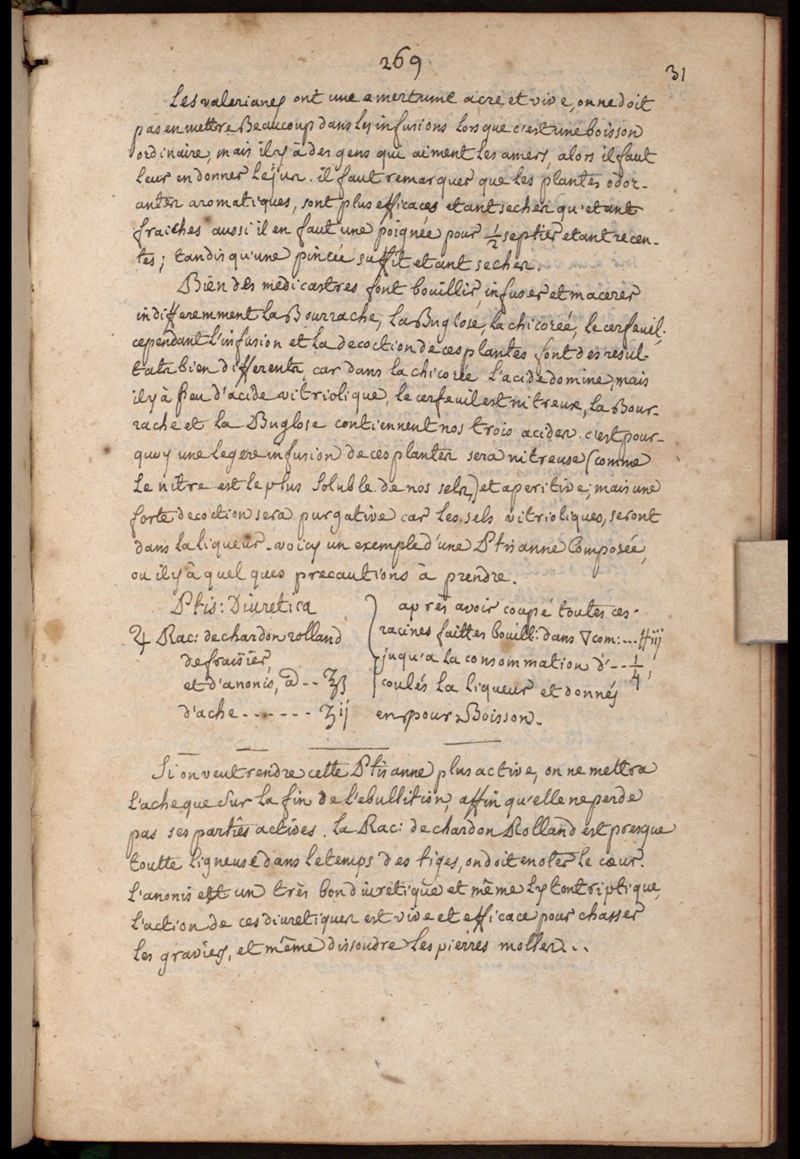 269
31
Les valerianes ont une amertume acre et vive, on ne doit
pas en mettre Beaucoup dans les infusions lorsque c'est une boisson
ordinaire, mais il y à des gens qui aiment les amers, alors il faut
leur en donner le jus. il faut remarquer que les plantes odor-
antes aromatiques, sont plus efficaces etant seches qu'etant
fraiches aussi il en faut une poignée pour ½ septier etant recen-
tes; tandis qu'une pincée suffit etant seches.
Bien des medicastres font bouillir, infuser et macerer
indifferemment la Bourrache, la Buglose, la chicorée, le cerfeuil;
cependant l'infusion et la decoction de ces plantes sont des resul-
tats bien differents, car dans la chicorée l'acide domine, mais
il y à peu d'acide vitriolique, le cerfeuil est nitreux, la Bour-
rache et la Buglose contiennent nos trois acides. c'est pour-
quoy une legere infusion de ces plantes sera nitreuse (comme
le nitre est le plus soluble de nos sels) et aperitive; mais une
forte decoction sera purgative car les sels vitrioliques, seront
dans la liqueur. voicy un exemple d'une Ptisanne Composée,
ou il y à quelques precautions à prendre.
Ptis: Diuretica
♃ Rac: de chardon rolland
de fraisier,
et d'anonis, ā -- ℥ß
d'ache ------- ℥ij
après avoir coupé toutes ces
racines faittes bouill: dans ▽ com: --- ℔iij
jusqu'a la consommation d' -- ¼,
coulés la liqueur et donnés
en pour Boisson.
Si on veut rendre cette Ptisanne plus active, on ne mettra
l'ache que sur la fin de l'ebullition, affin qu'elle ne perde
pas ses parties actives. la Rac: de chardon Rolland est presque
toutte ligneuse dans le temps des tiges, on doit en oter le cœur.
L'anonis est un très bon diuretique et même lytontriptique,
l'action de ces diuretiques est vive et efficace pour chasser
les graviers, et même dissoudre les pierres molles..